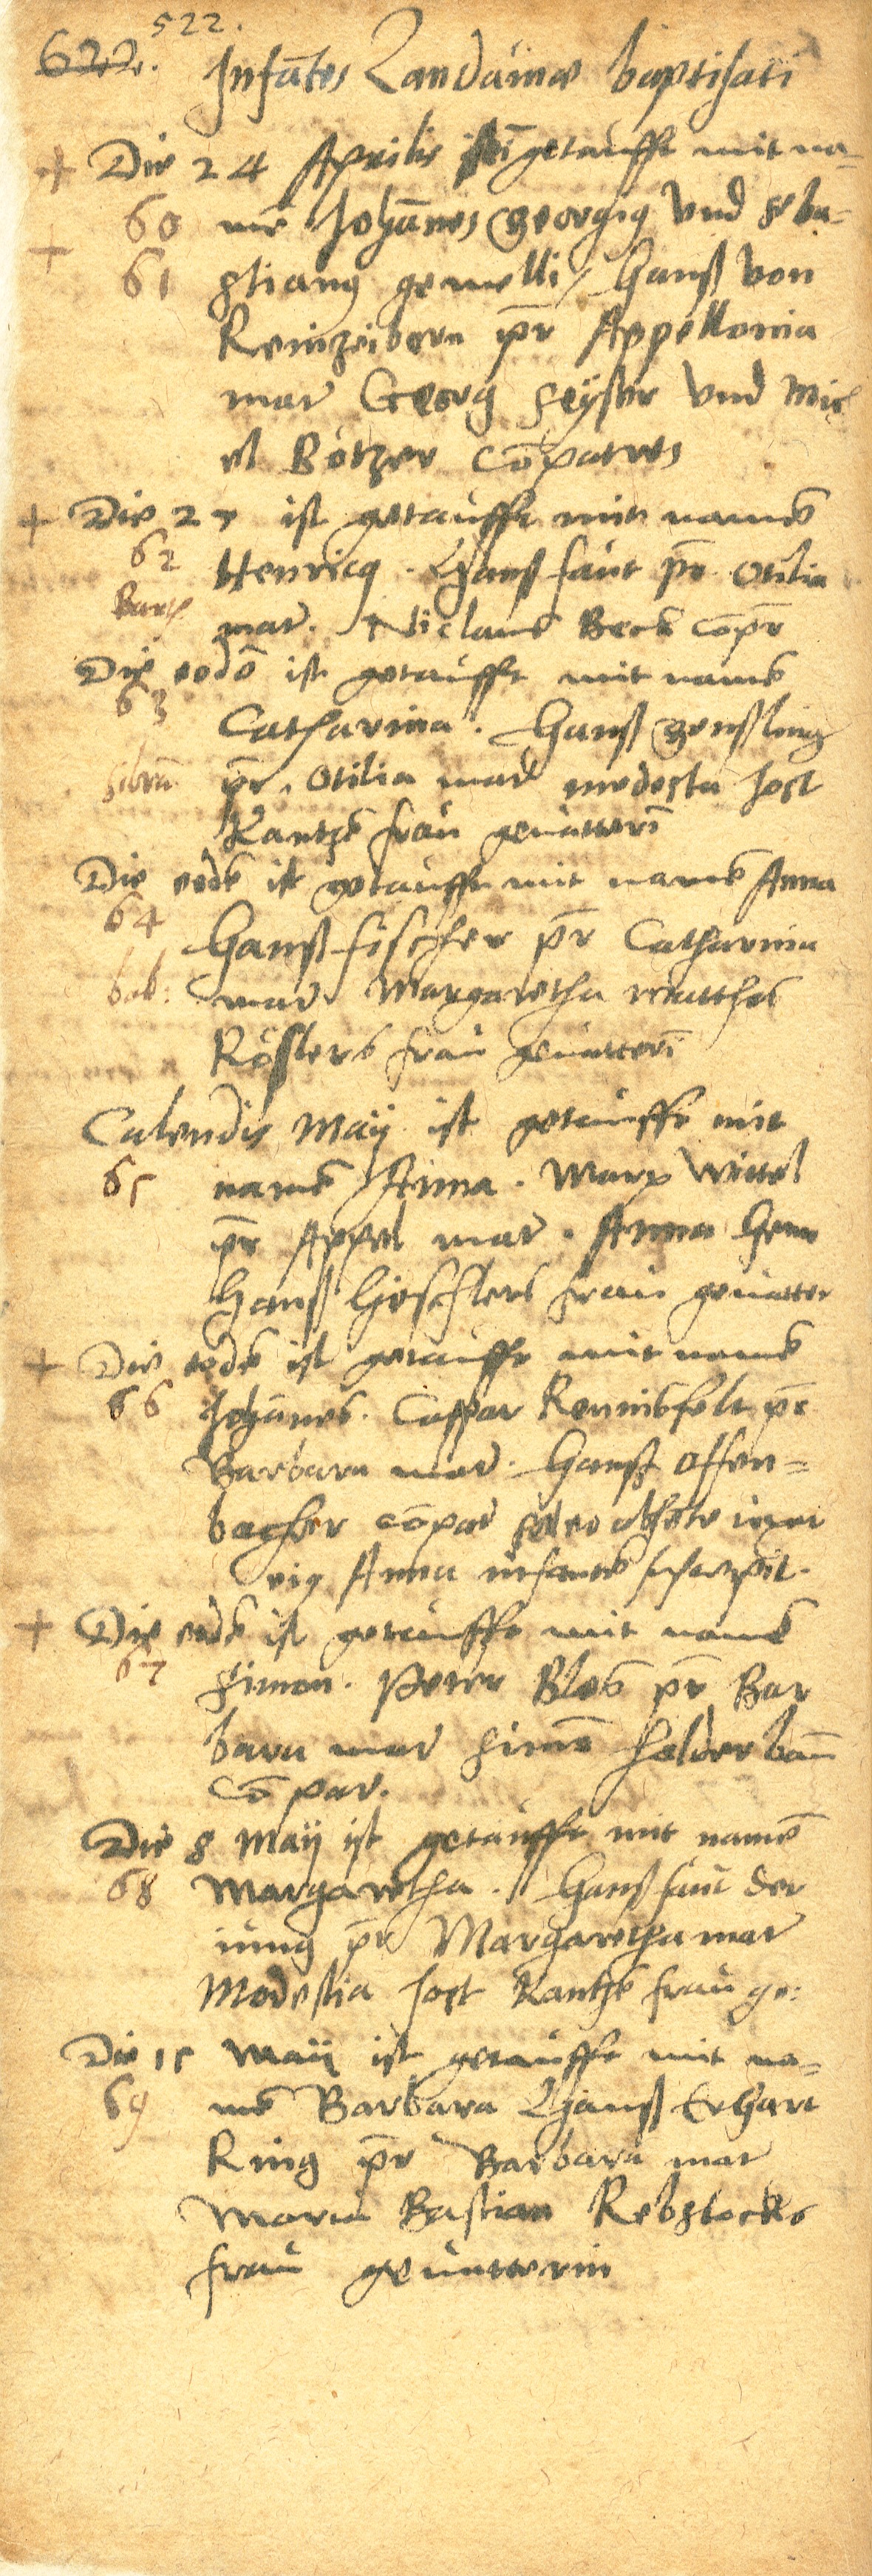 522.
622.
Infātes Landauiae baptisati
+ Die 24 Aprilis sei getaufft mit na-
60 mē Johānes Georgi9 vnd Seba-
+ 61 stian9 gemelli / Hanß von
Reinzabern pr̄ Appellonia
mar Georg Seyster vnd Mich
el Bötzer cōpatres
+ Die 27 ist getaufft mit namē
62 Henric9 . Hanß faut pr̄ Otilia
Barth mar . Niclaus Beck cōpr̄
Die eodē ist getaufft mit namē
63 Catharina . Hanß Genßling
pr̄ . Otilia mar modesta Jost
Kantzē frau geuatterī
Die eodē ist getaufft mit namē Anna
64 Hanß fischer pr̄ Catharina
bab: mar Margaretha Matthes
Röslers frau geuatterī
Calendis Maij ist getaufft mit
65 namē Anna . Marx Wittel
pr̄ Appel mar . Anna
Hanß frau geuatter
+ Die eodē ist getaufft mit namē
66 Johānes . Caspar Rennisfelt pr̄
Barbara mar . Hanß Offen-
bacher cōpar
Anna infantē suscepit .
+ Die eodē ist getaufft mit namē
67 Simon . Peter Bles pr̄ Bar
bara mar Simō Holderbau̅
cōpar .
Die 8 Maij ist getaufft mit namē
68 Margaretha . Hanß faut der
iung pr̄ Margaretha mar
Modestia Jost Kantzē frau ge:
Die 15 Maij ist getaufft mit na-
69 mē Barbara Hanß Erhart
Ring pr̄ Barbara mar
Maria Bastian Rebstocks
frau geuatterin